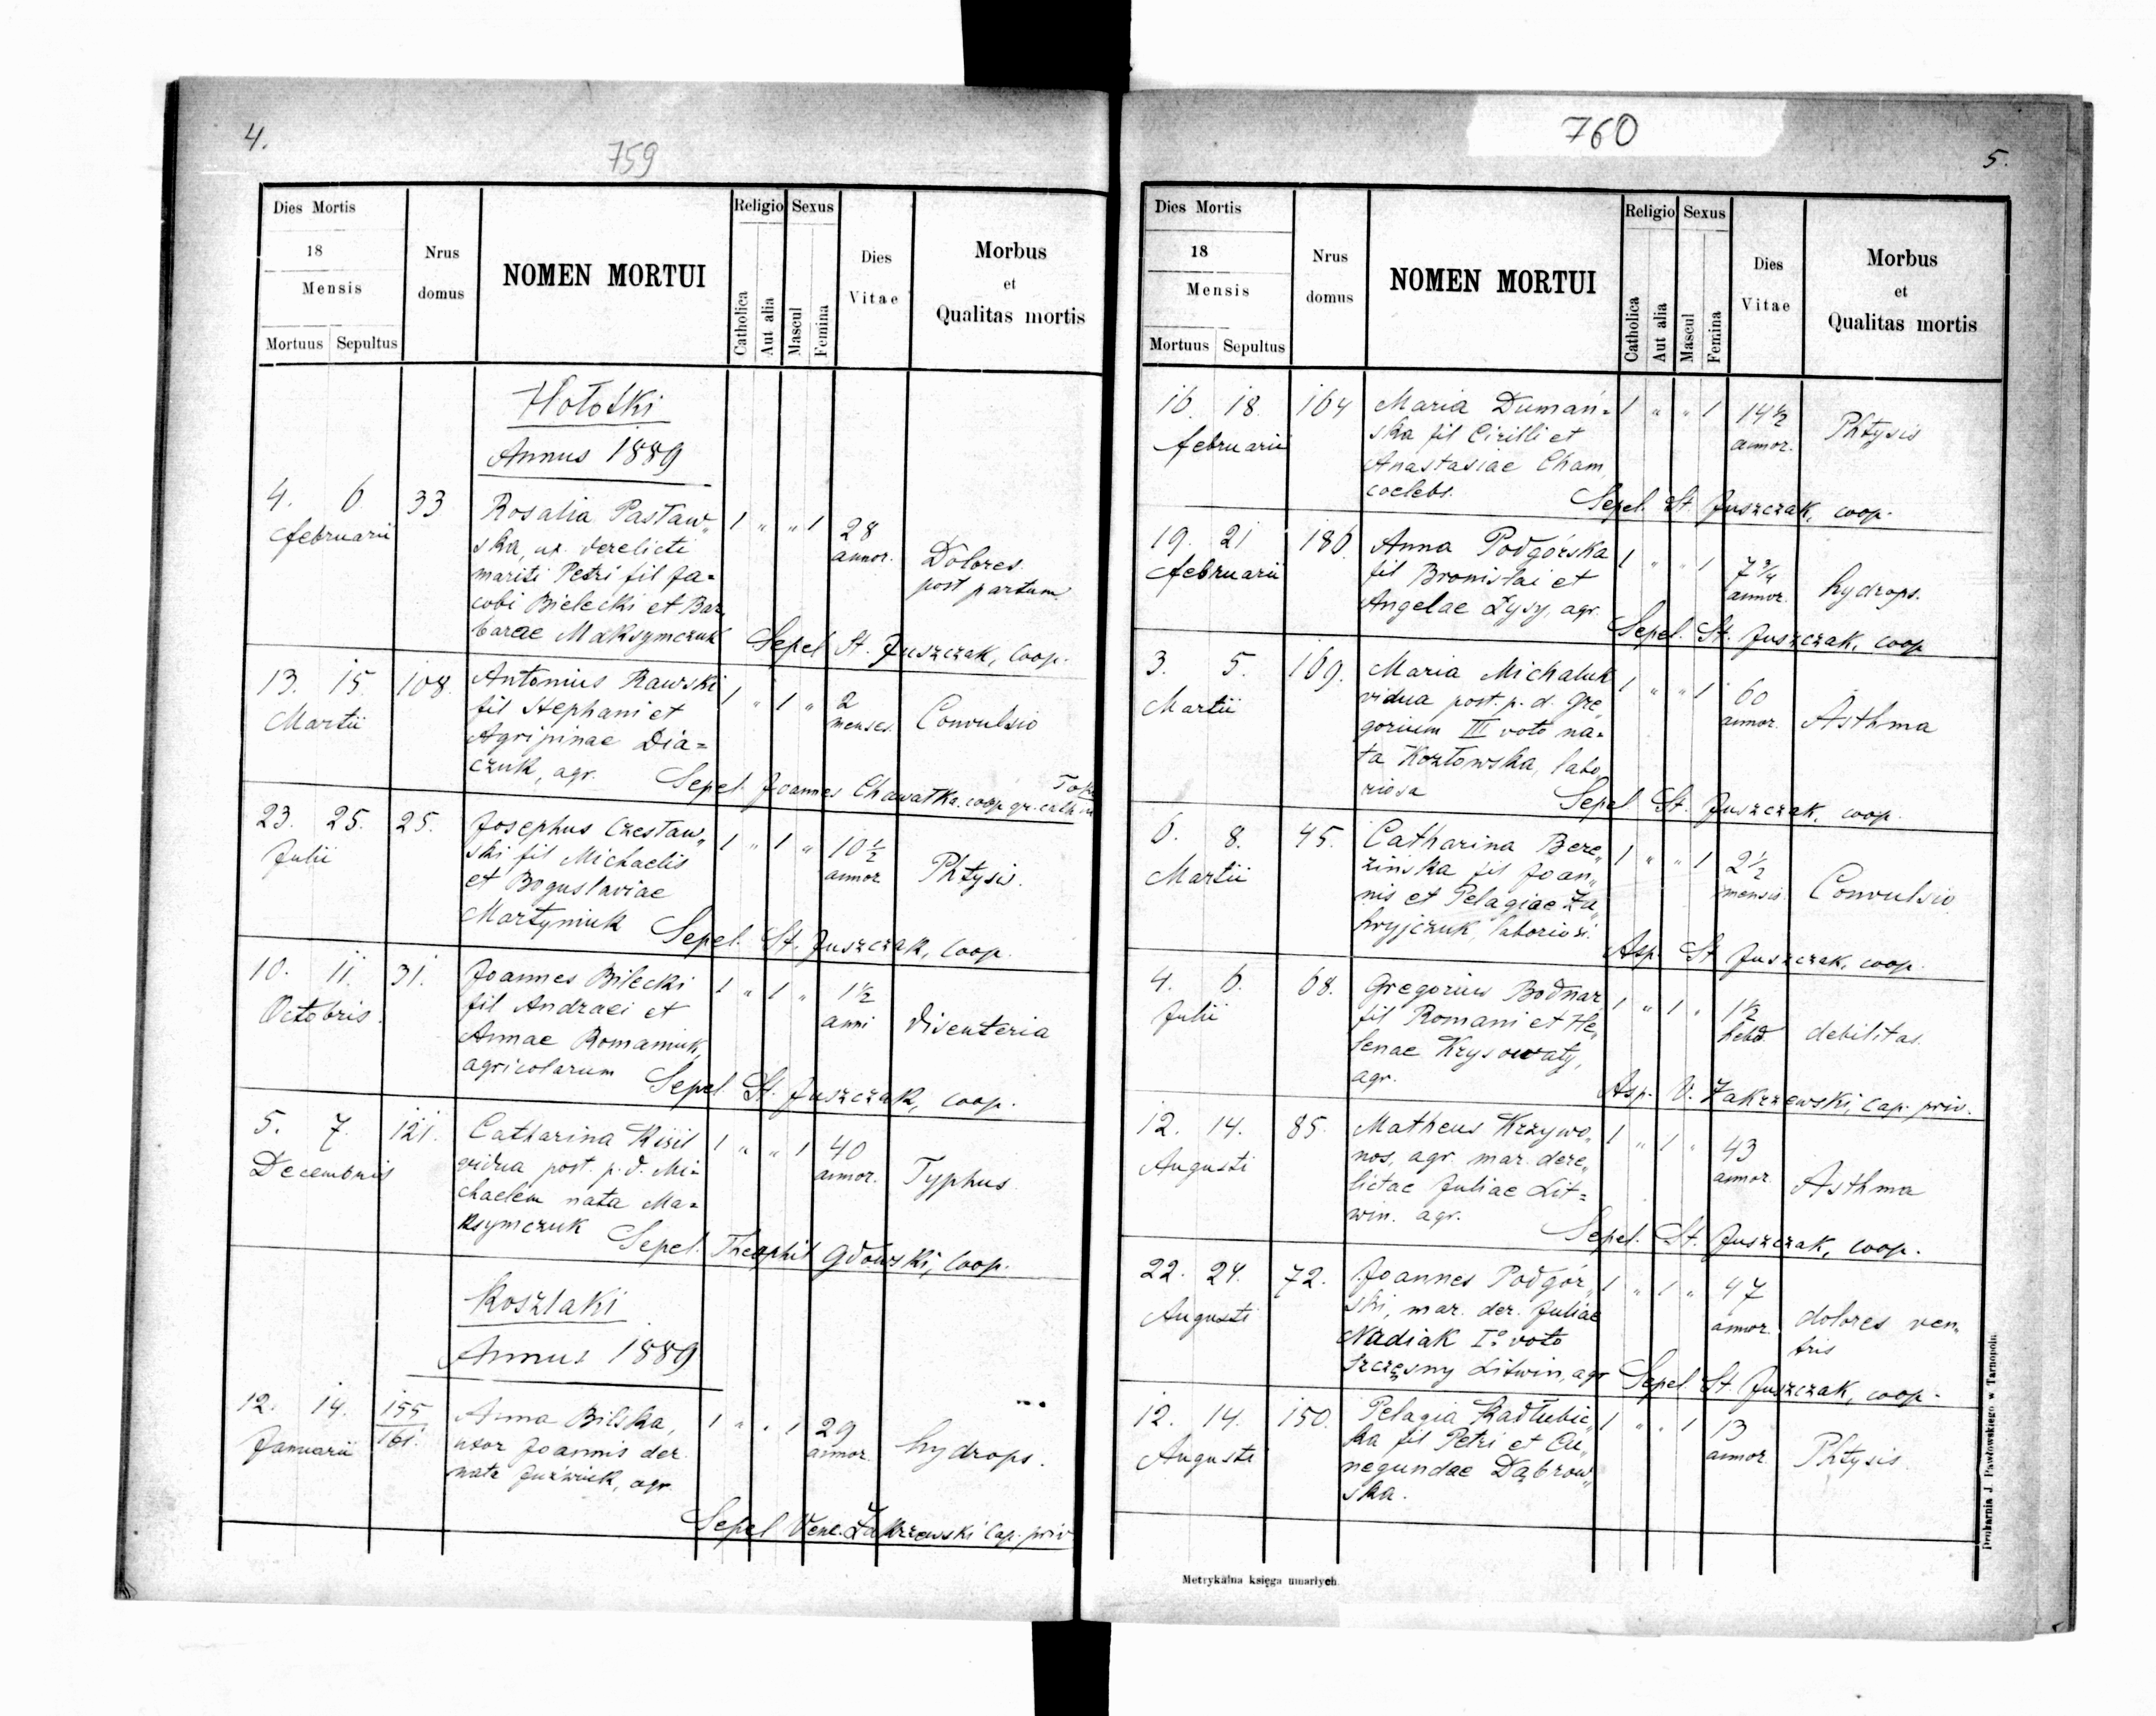 4.
759
Dies Mortis
18
Mensis
Mortuus Sepultus
Nrus
domus
NOMEN MORTUI
Religio
Catholica
Aut alia
Sexus
Mascul
Femina
Dies
Vitae
Morbus
et
Qualitas mortis
Hołotki
Annus 1889
4. 6 33 Rosalia Pastaw„ 1 „ „ 1 28
februarii ska, ux. derelicti annor. Dolores
mariti Petri fil Ja= post partum
cobi Bielecki et Bar
barae Maksymczuk Sepel St. Juszczak, coop.
13. 15. 108. Antonius Rawski 1 „ 1 „ 2
Martii fil Stephani et menses. Convulsio
Agripinae Dia=
czuk, agr. Sepel. Joannes Chawatka coop gr. cath.
23. 25. 25. Josephus Czestaw„ 1 „ 1 „ 10 ½
Julii ski fil Michaelis annor Phtysis.
et Boguslaviae
Martyniuk Sepel. St. Juszczak, coop.
10. 11. 31. Joannes Bilecki 1 „ 1 „ 1½
Octobris. fil Andraei et anni disenteria
Annae Romaniuk,
agricolarum Sepel St. Juszczak, coop.
5. 7. 121. Catharina Kisil 1 „ „ 1 40
Decembris vidua post. p. d. Mi= annor. Typhus
chaelem nata Ma=
ksymczuk Sepel. Theophil Gdowski, coop.
Koszlaki
Annus 1889
12. 14. 155 Anna Bilska, 1 „ „ 1 29
Januarii 161. uxor Joannis der. annor. hydrops.
nata agr.
Sepel Venc. Zakrzewski Cap. priv.
760
5.
Dies Mortis
18
Mensis
Mortuus Sepultus
Nrus
domus
NOMEN MORTUI
Religio
Catholica
Aut alia
Sexus
Mascul
Femina
Dies
Vitae
Morbus
et
Qualitas mortis
16. 18. 164 Maria Dumań= 1 „ „ 1 14½
februarii ska fil Cirilli et annor. Phtysis
Anastasiae Cham
coelebs. Sepel. St. Juszczak, coop.
19. 21 186. Anna Podgórska 1 „ „ 1 7¾
februarii fil Bronislai et annor. hydrops.
Angelae Łysy, agr. Sepel. St. Juszczak, coop
3. 5. 169. Maria Michaluk 1 „ „ 1 60
Martii vidua post. p. d. Gre„ annor. Asthma
gorium III voto na=
ta Kozłowska, labo
riosa Sepel St. Juszczak, coop.
6. 8. 45. Catharina Bere„ 1 „ „ 1 2½
Martii zińska fil Joan„ mensis. Convulsio
nis et Pelagiae Za„
hryjczuk, laboriosi. Asp. St Juszczak, coop.
4. 6. 68. Gregorius Bodnar 1 „ 1 „ 1½
Julii fil Romani et He„ hebd. debilitas.
lenae Krysowaty,
agr. Asp. V. Zakrzewski, cap. priv.
12. 14. 85. Matheus Krzywo„ 1 „ 1 „ 43
Augusti nos, agr. mar. dere„ annor. Asthma
lictae Juliae Lit=
win. agr. Sepel. St. Juszczak, coop.
22. 24. 72. Joannes Podgór„ 1 „ 1 „ 47
Augusti ski, mar. der. Juliae annor. dolores ven„
Nadiak I° voto tris
Szczęsny Litwin, agr Sepel St. Juszczak, coop.
12. 14. 150. Pelagia Kadłubic„ 1 „ „ 1 13
Augusti ka fil Petri et Cu„ annor. Phtysis
negundae Dąbrow„
ska.
Metrykalna księga umarłych.
Drukarnia J. Pawłowskiego w Tarnopolu.